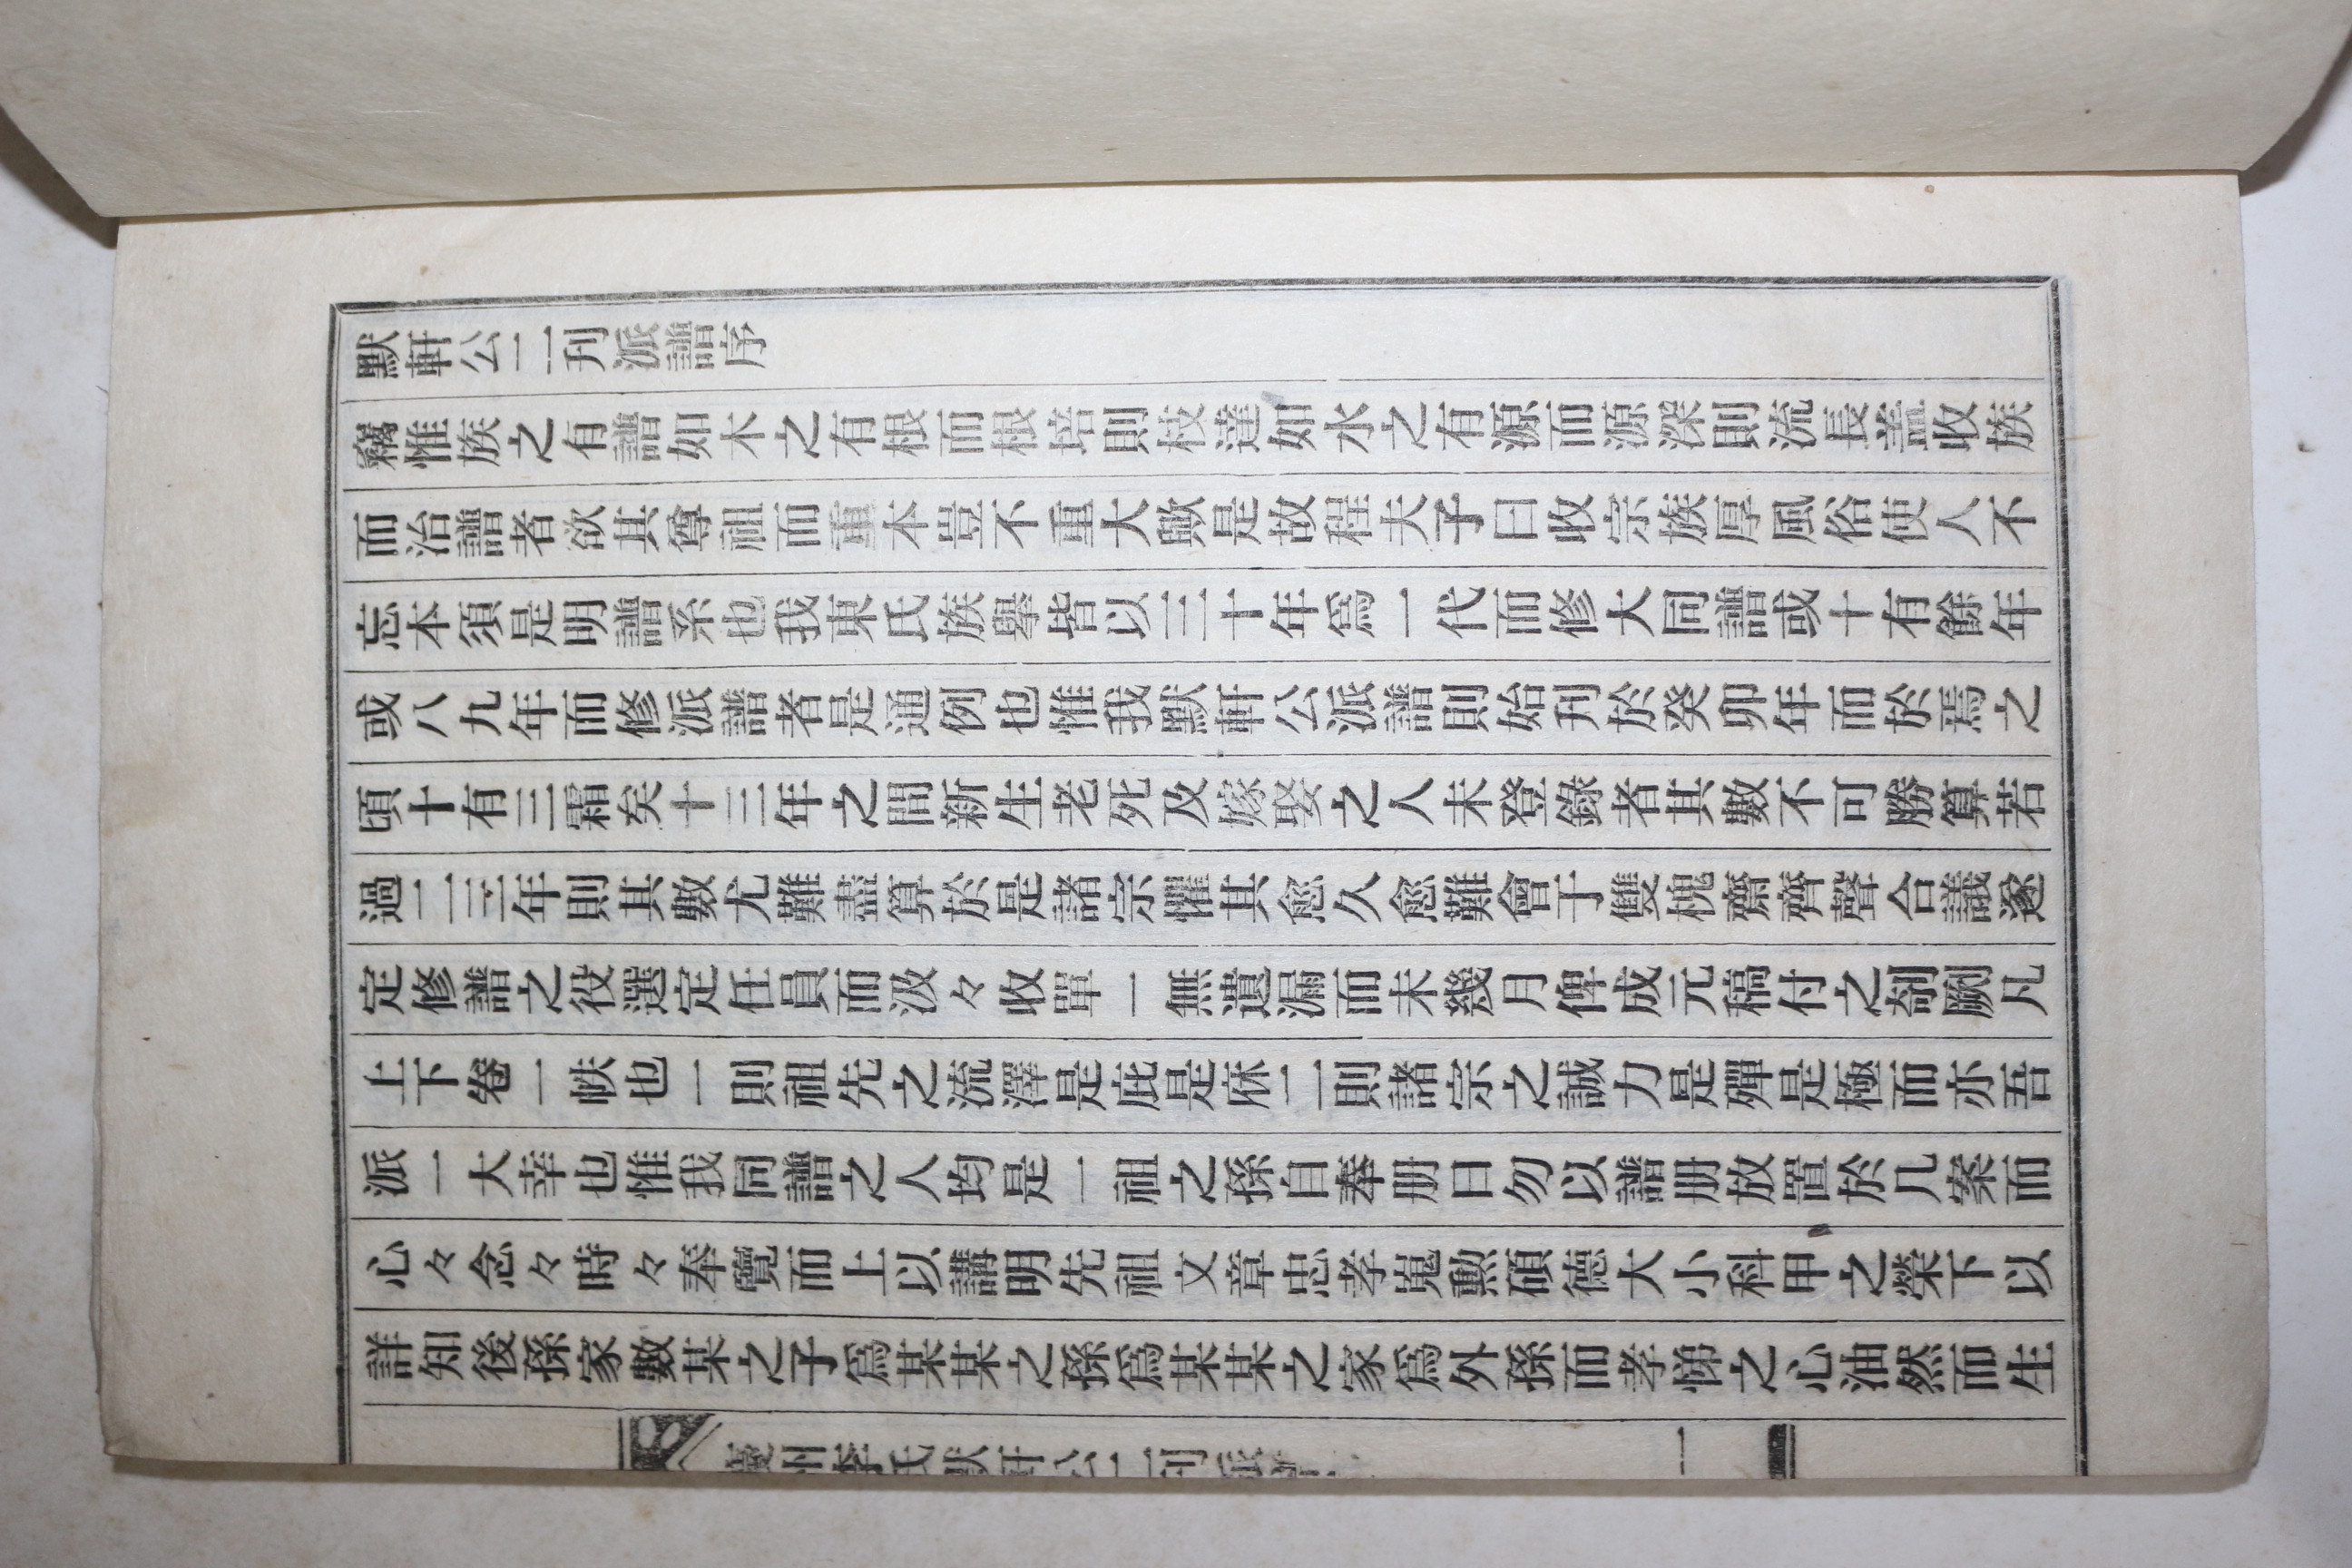 默軒公二刊派譜序
竊惟族之有譜如木之有根而根培則枝達如水之有源而源深則流長盖收族
而治譜者欲其尊祖而重本豈不重大歟是故程夫子曰收宗族厚風俗使人不
忘本須是明譜系也我東氏族擧皆以三十年爲一代而修大同譜或十有餘年
或八九年而修派譜者是通例也惟我默軒公派譜則始刊於癸卯年而於焉之
頃十有三霜矣十三年之間新生老死及嫁娶之人未登錄者其數不可勝算若
過二三年則其數尤難盡算於是諸宗懼其愈久愈難會于雙槐齋齊聲合議遂
定修譜之役選定任員而汲々收單一無遺漏而未幾月俾成元稿付之剞劂凡
上下卷一帙也一則祖先之流澤是庇是庥二則諸宗之誠力是殫是極而亦吾
派一大幸也惟我同譜之人均是一祖之孫自奉册日勿以譜册放置於几案而
心々念々時々奉覽而上以講明先祖文章忠孝嵬勳碩德大小科甲之榮下以
詳知後孫家數某之子爲某某之孫爲某某之家爲外孫而孝悌之心油然而生
慶州李氏默軒公二刊派譜
一